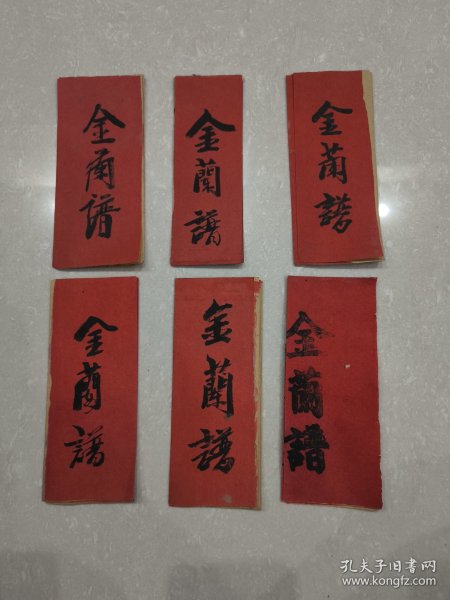 金蘭譜
金蘭譜
金蘭譜
金蘭譜
金蘭譜
金蘭譜
孔夫子旧书网
www.kongfz.com